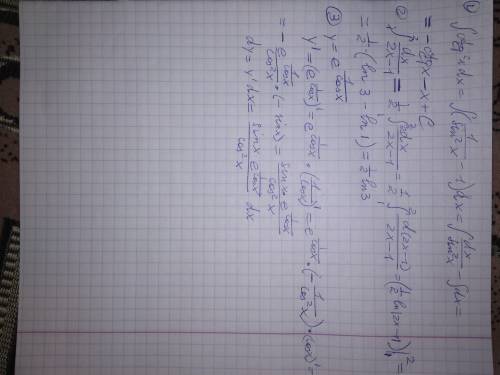 ① ∫ctg²xdx = ∫(1/sin²x − 1)dx = ∫dx/sin²x − ∫dx =
= −ctgx − x + C
② ∫₁² dx/2x−1 = 1/2 ∫₁² 2dx/2x−1 = 1/2 ∫₁² d(2x−1)/2x−1 = (1/2 ln|2x−1|)|₁² =
= 1/2 · (ln3 − ln1) = 1/2 ln3
③ y = e^(1/cosx)
y' = (e^(1/cosx))' = e^(1/cosx) · (1/cosx)' = e^(1/cosx) · (−1/cos²x) · (cosx)' =
= − e^(1/cosx)/cos²x · (−sinx) = sinx · e^(1/cosx)/cos²x
dy = y'dx = sinx e^(1/cosx)/cos²x dx